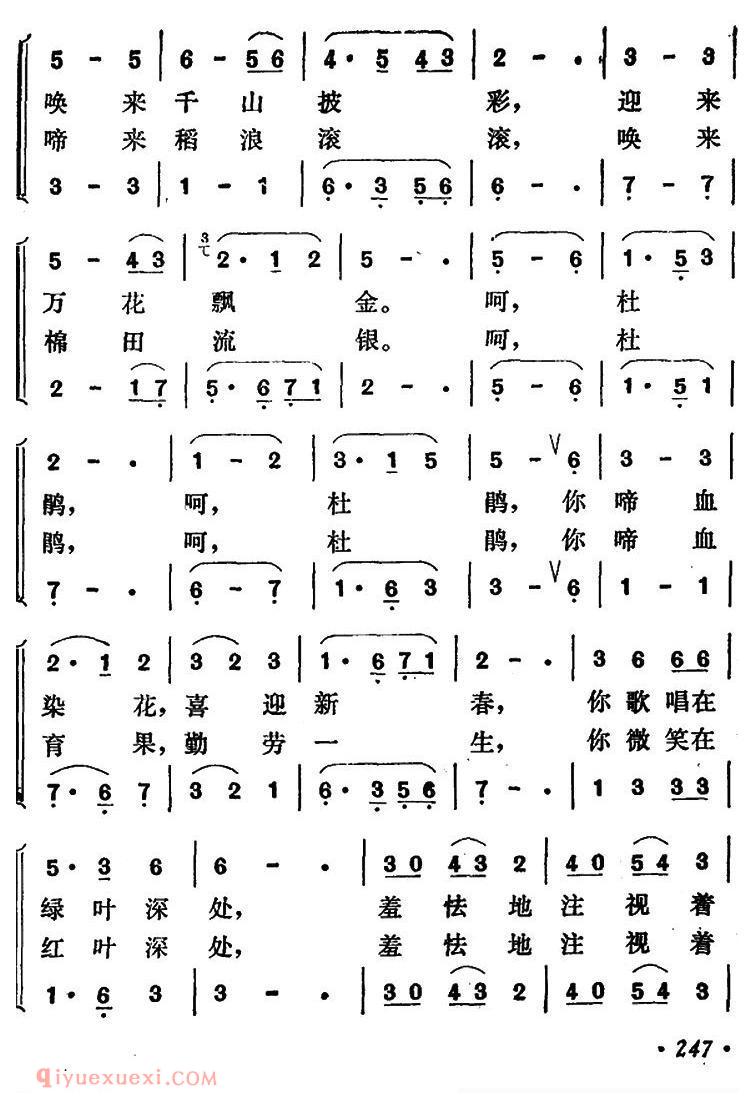 5 - 5 | 6 - 5 6 | 4 · 5 4 3 | 2 - · | 3 - 3 |
唤 来 千 山 披 彩， 迎 来
啼 来 稻 浪 滚 滚， 唤 来
3 - 3 | 1 - 1 | 6 · 3 5 6 | 6 - · | 7 - 7 |
5 - 4 3 | 3 2 · 1 2 | 5 - · | 5 - 6 | 1 · 5 3 |
万 花 飘 金。 呵， 杜
棉 田 流 银。 呵， 杜
2 - 1 7 | 5 · 6 7 1 | 2 - · | 5 - 6 | 1 · 5 1 |
2 - · | 1 - 2 | 3 · 1 5 | 5 - V 6 | 3 - 3 |
鹃， 呵， 杜 鹃，你 啼 血
鹃， 呵， 杜 鹃，你 啼 血
7 - · | 6 - 7 | 1 · 6 3 | 3 - V 6 | 1 - 1 |
2 · 1 2 | 3 2 3 | 1 · 6 7 1 | 2 - · | 3 6 6 6 |
染 花，喜 迎 新 春， 你 歌 唱 在
育 果，勤 劳 一 生， 你 微 笑 在
7 · 6 7 | 3 2 1 | 6 · 3 5 6 | 7 - · | 1 3 3 3 |
5 · 3 6 | 6 - · | 3 0 4 3 2 | 4 0 5 4 3 |
绿 叶 深 处， 羞 怯 地 注 视 着
红 叶 深 处， 羞 怯 地 注 视 着
1 · 6 3 | 3 - · | 3 0 4 3 2 | 4 0 5 4 3 |
· 247 ·
qiyuexuexi.COM